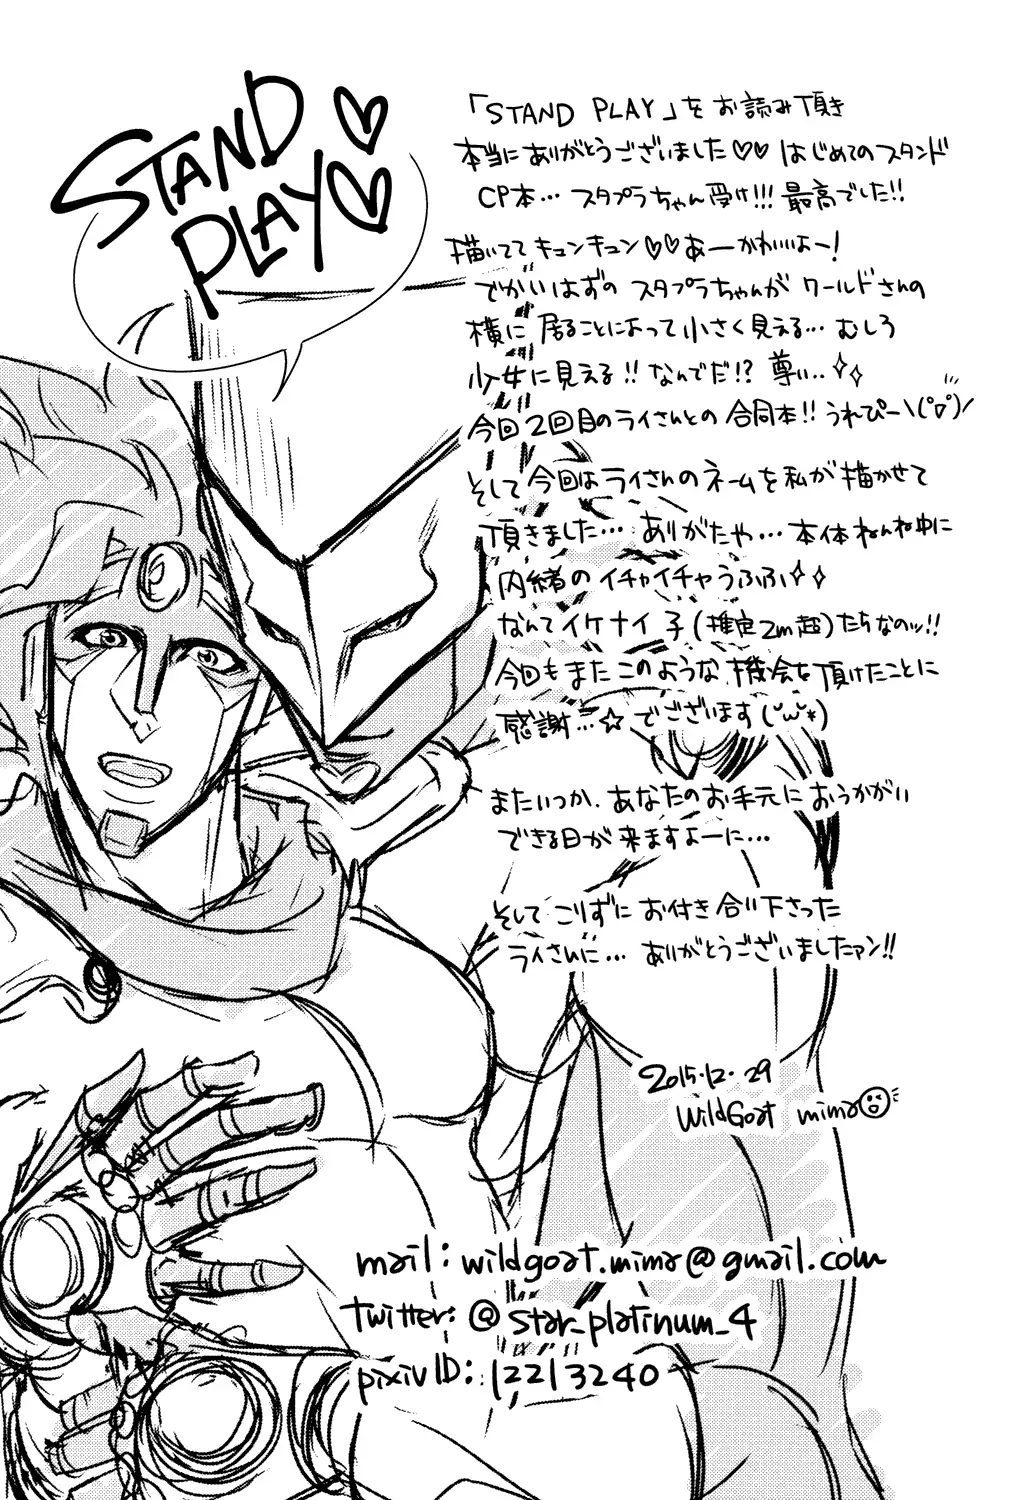 STAND
PLAY♡♡
「STAND PLAY」をお読み頂き
本当にありがとうございました♡♡ はじめてのスタンド
CP本… スタプラちゃん受け!!! 最高でした!!
描いてて キュンキュン♡♡あーかわいいよー!
でかいはずの スタプラちゃんが ワールドさんの
横に 居ることによって小さく見える… むしろ
少女に見える!! なんでだ!? 尊い…✧✧
今回2回目のライさんとの 合同本!! うれぴー\(°▽°)/
そして今回はライさんのネームを私が描かせて
頂きました… ありがたや… 本体ねんね中に
内緒のイチャイチャうふふ✧✧
なんてイケナイ子(推定2m超)たちなのッ!!
今回もまたこのような 機会を頂けたことに
感謝…☆でございます(˘ω˘*)
またいつか、あなたのお手元におうかがい
できる日が来ますよーに…
そしてこりずにお付き合い下さった
ライさんに… ありがとうございましたァン!!
2015.12.29
WildGoat mima
mail: wildgoat.mima@gmail.com
twitter: @star_platinum_4
pixivID: 12213240